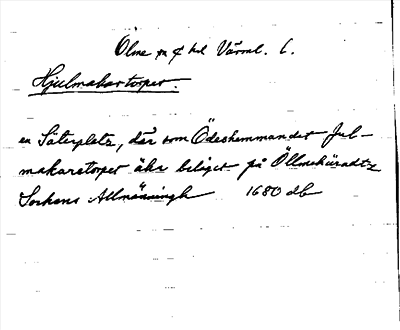 Ölme sn & hd Värml. l.
Hjulmakartorpet.
en Säterplatz, där som Ödeshemmandet Jul-
makaretorpet ähr beläget på Öllmehäradtz
Sochens Allmänningh 1680 db